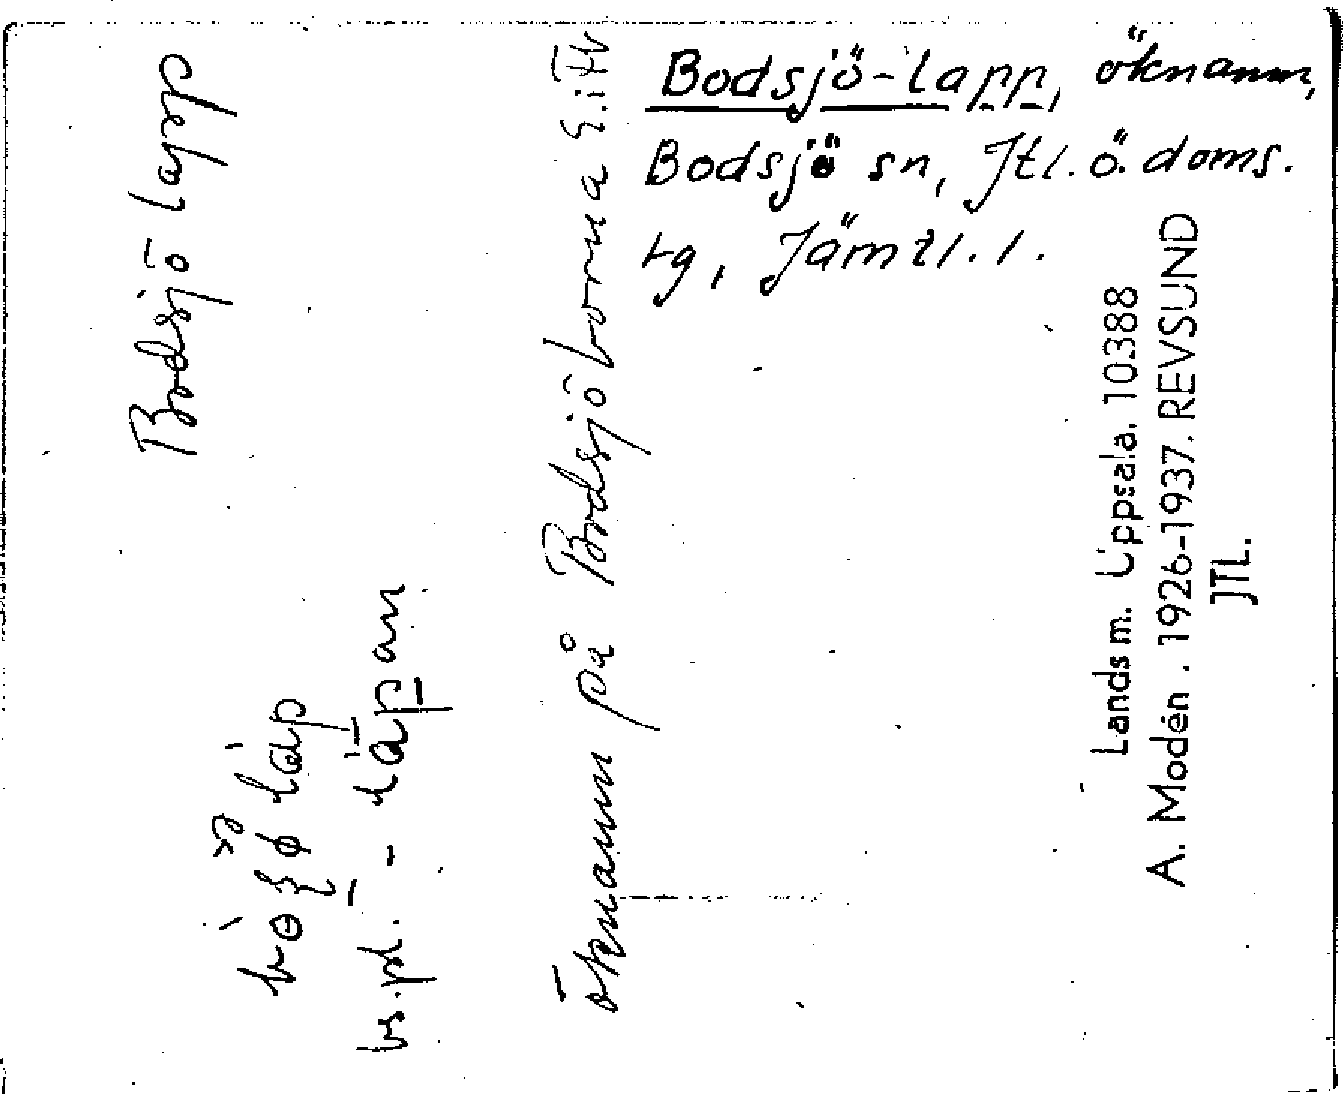 Bodsjö-lapp, öknamn,
Bodsjö sn, Jtl. ö. doms.
tg, Jämtl. l.
Bodsjö lapp
bs. pl. -
öknamn på Bodsjöborna
Landsm. Uppsala. 10388
A. Modén. 1926-1937. REVSUND
JTL.